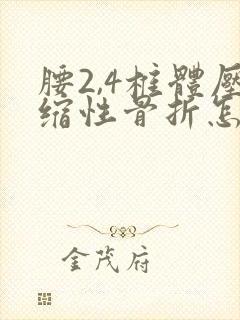 腰2,4椎體壓
缩性骨折怎
金茂府